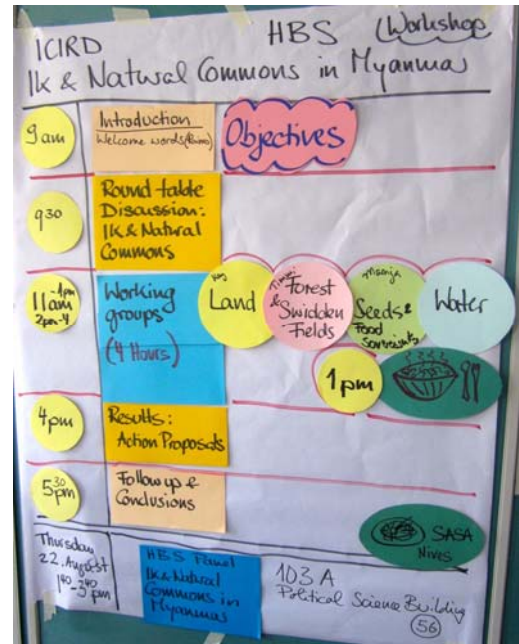 ICIRD HBS Workshop
Ik & Natural Commons in Myanmar
9am
Introduction
Welcome words
Objectives
9 30
Round table
Discussion:
Ik & Natural
Commons
11am -1pm
2pm-4
Working
groups
(4 Hours)
Land
Forest
&
Swidden
Fields
Seeds &
Food
Water
1pm
4pm
Results:
Action Proposals
5 30 pm
Follow up &
Conclusions
SASA
Nives
Thursday
22. August
1 40 - 3 40 pm
HBS Panel
Ik & Natural
Commons in
Myanmar
103 A
Political Science Building
56